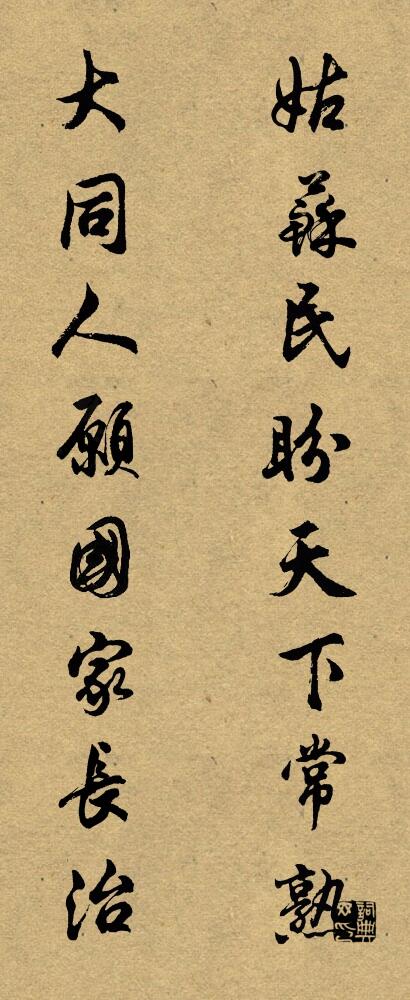 姑蘇民盼天下常熟
大同人願國家長治